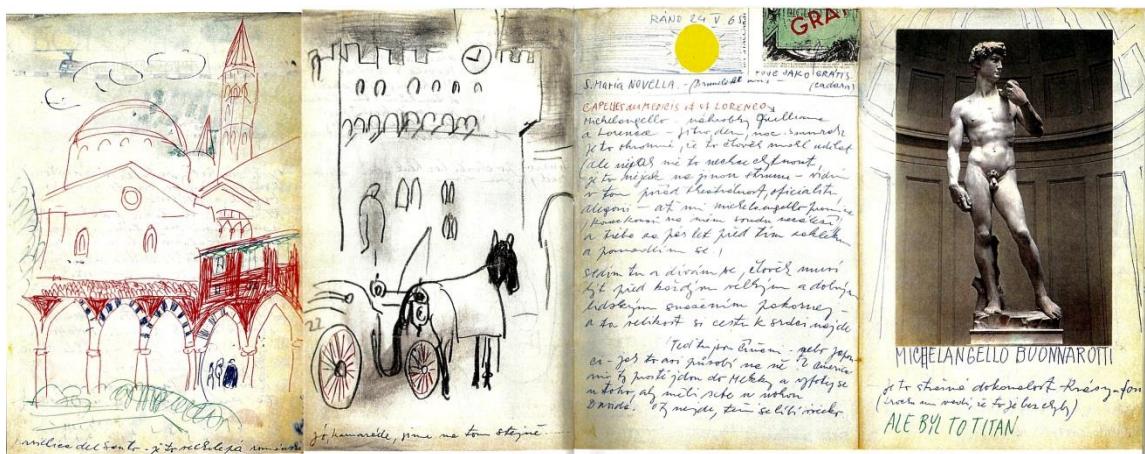 basilica del Santo - je to velkolepá románsk
jó, kamaráde, jsme na tom stejně
RÁNO 24 V 65
GRA
JAKO GRATIS
(zadarmo)
S. MARIA NOVELLA -
CAPELLES des MEDICIS
LORENCO
Michelangello - náhrobky Guilliana
a Lorenca - jitro, den, noc, soumrak
je to ohromné, že to člověk mohl udělat
ale nějak mě to nechce chytnout,
je to nějak na jinou strunu - vidím
v tom pořád theatrálnost, oficialitu
alegorii - ať mi michelangello promine
a třeba za pár let před tím
a pomodlím se!
sedím tu a dívám se, člověk musí
být před každým velkým a dobrým
lidským snažením pokorný -
a ta velikost si cestu k srdci najde
Teď tu jsou Číňani - nebo Japon
ci - jak to asi působí na ně? A američa
ni ty prostě jdou do Mekky a vyfotí se
u toho, aby měli sebe u nohou
Davida. , těm se líbí všecko.
MICHELANGELLO BUONNAROTTI
je to strašná dokonalost krásy - fon
(trochu mu vadí, že to je bez chyby)
ALE BYL TO TITAN